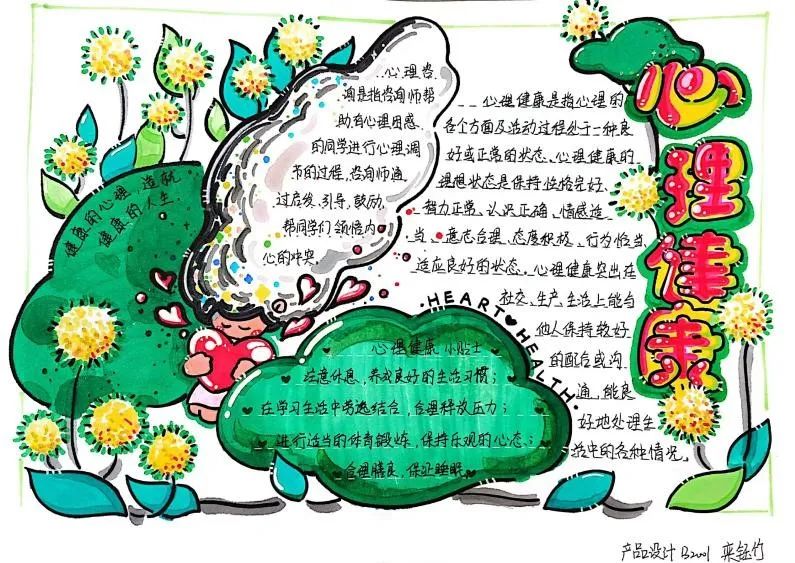 心理健康
健康的心理，造就
健康的人生
心理咨
询是指咨询师帮
助有心理困惑
的同学进行心理调
节的过程，咨询师通
过启发、引导、鼓励，
帮同学们领悟内
心的冲突。
心理健康是指心理的
各个方面及活动过程处于一种良
好或正常的状态。心理健康的
理想状态是保持性格完好、
智力正常、认识正确、情感适
当、意志合理、态度积极、行为恰当、
适应良好的状态。心理健康突出在
社交、生产、生活上能与
他人保持较好
的配合或沟
通，能良
好地处理生
活中的各种情况。
HEART♥HEALTH.
心理健康小贴士
♥ 注意休息，养成良好的生活习惯；
♥ 在学习生活中劳逸结合，合理释放压力；
♥ 进行适当的体育锻炼，保持乐观的心态；
♥ 合理膳食，保证睡眠
产品设计B2001 栾钰竹